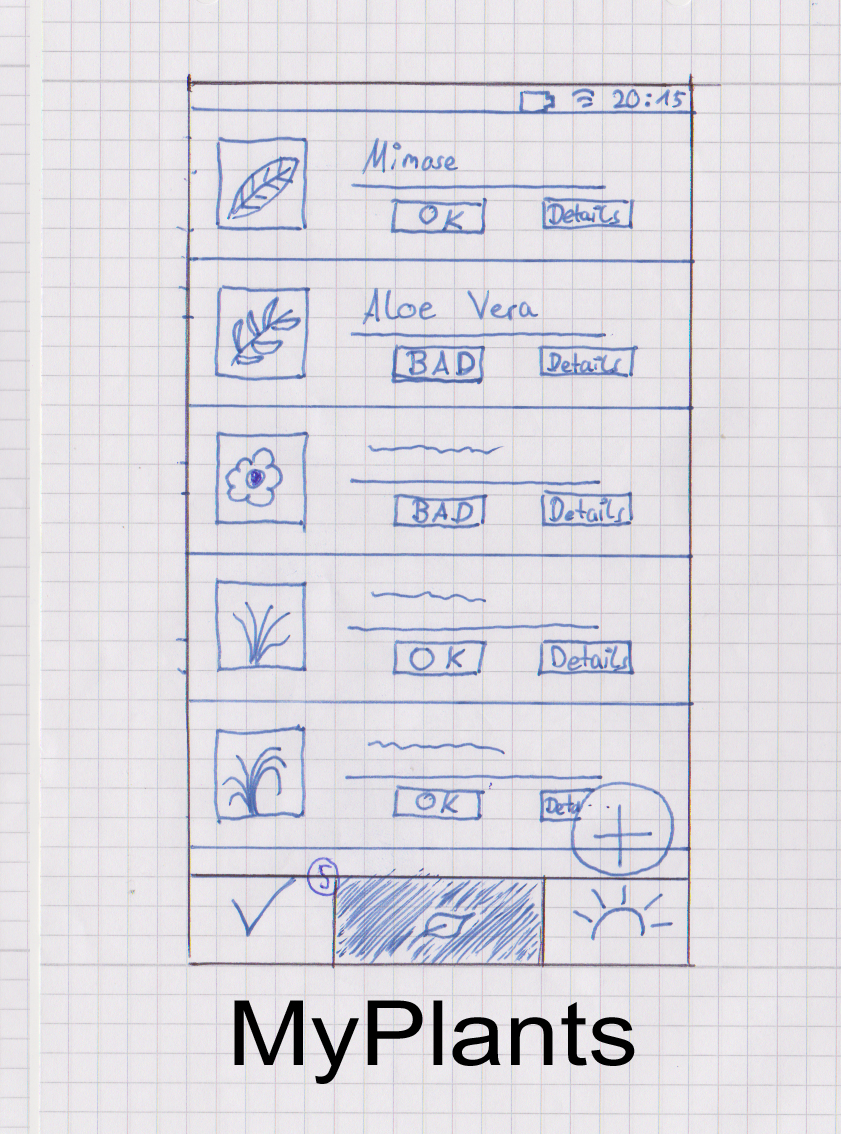 20:15
Mimose
OK Details
Aloe Vera
BAD Details
BAD Details
OK Details
OK Deta
5
MyPlants